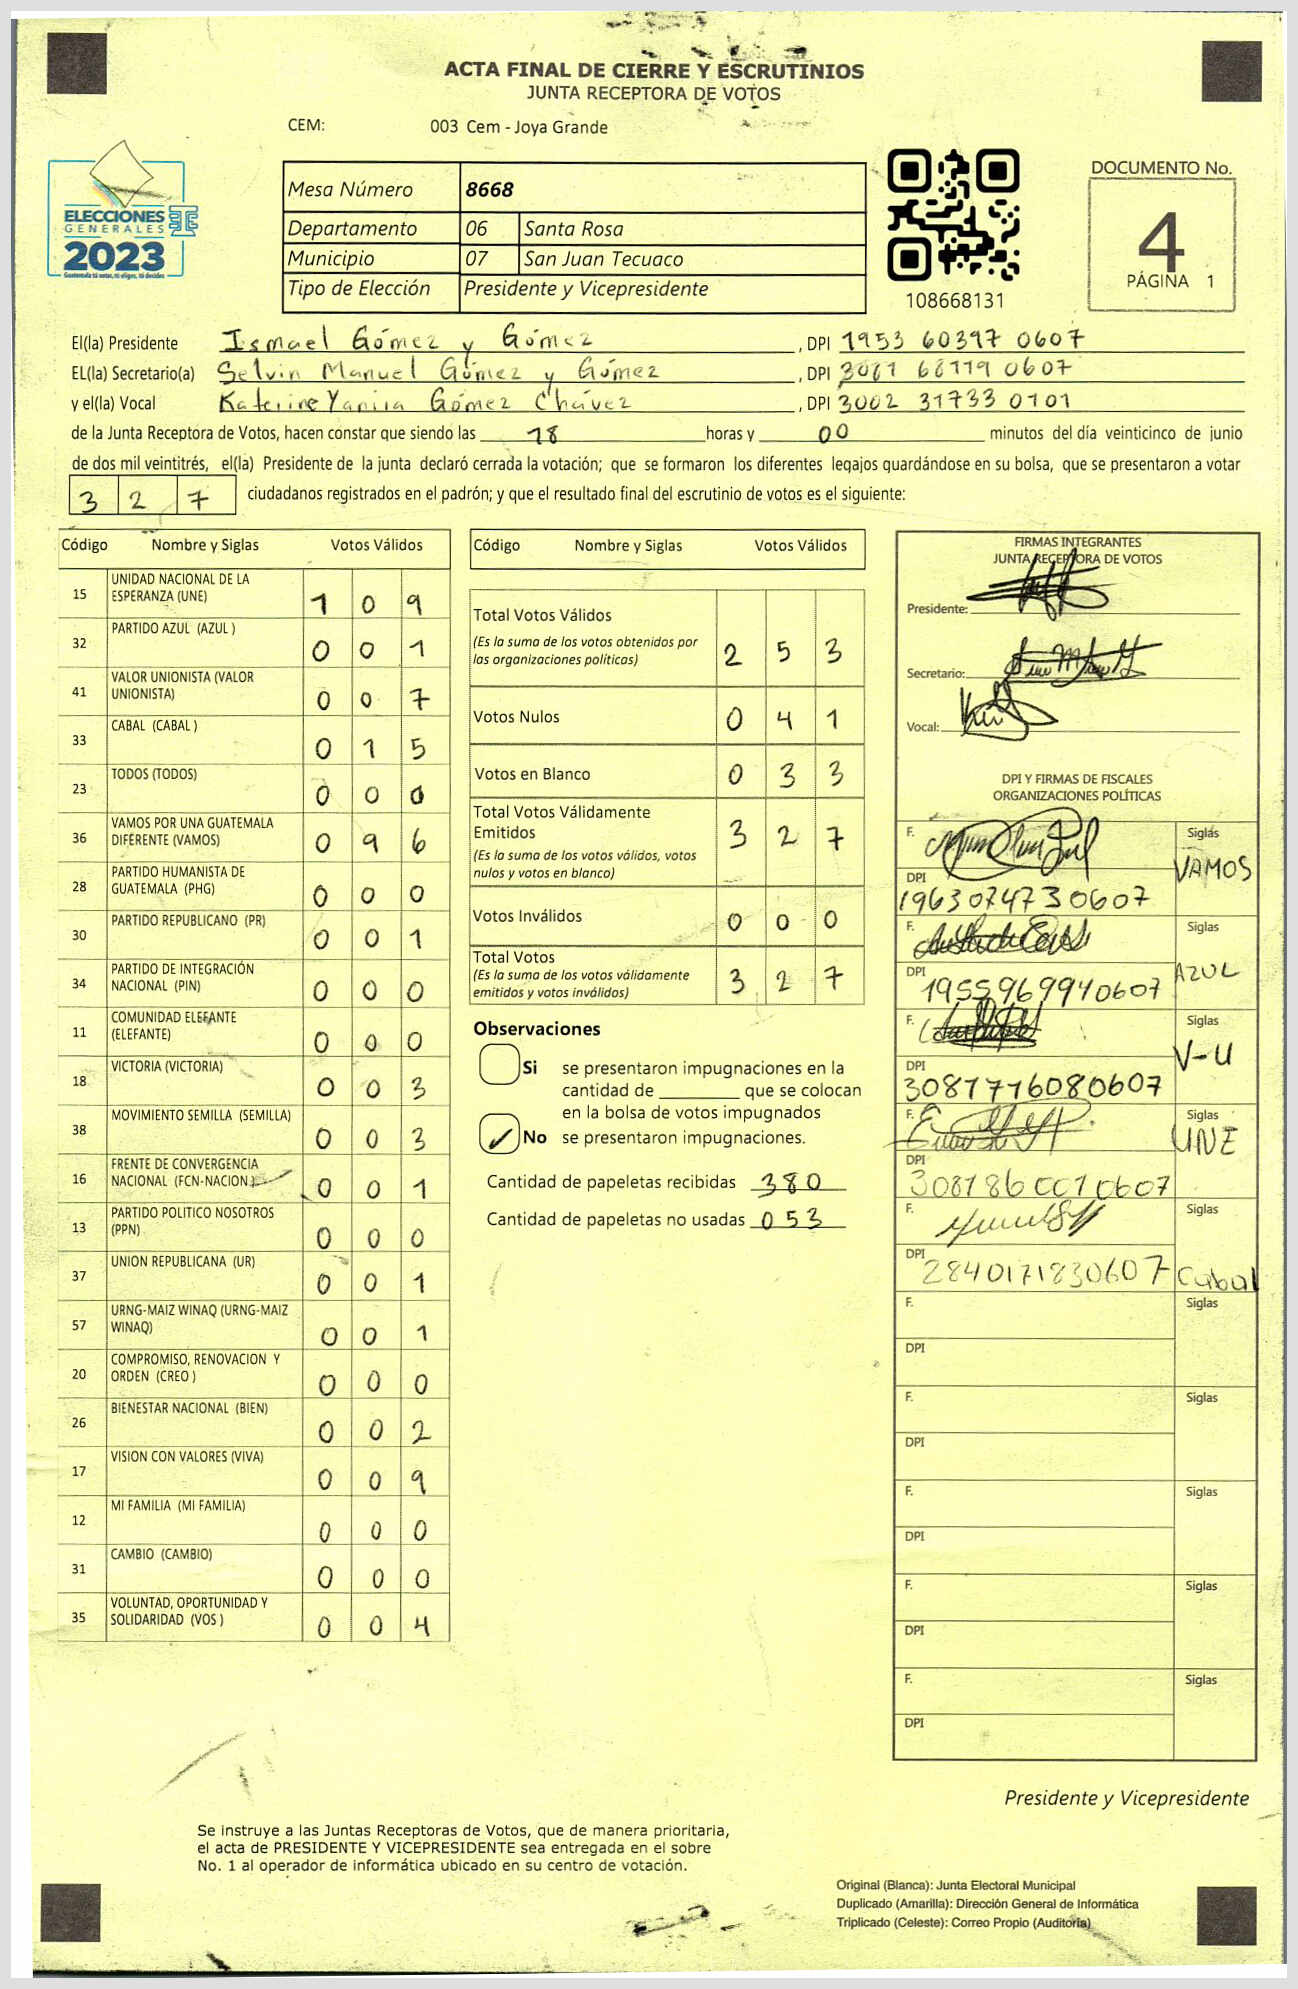 ACTA FINAL DE CIERRE Y ESCRUTINIOS
JUNTA RECEPTORA DE VOTOS
CEM: 003 Cem - Joya Grande
ELECCIONES
GENERALES
2023
Guatemala tú votas, tú eliges, tú decides
Mesa Número 8668
Departamento 06 Santa Rosa
Municipio 07 San Juan Tecuaco
Tipo de Elección Presidente y Vicepresidente
108668131
DOCUMENTO No.
4
PÁGINA 1
El(la) Presidente Ismael Gómez y Gómez , DPI 1953 60397 0607
EL(la) Secretario(a) Selvin Manuel Gómez y Gómez , DPI 3081 68119 0607
y el(la) Vocal Katerine Yanira Gómez Chávez , DPI 3002 31733 0101
de la Junta Receptora de Votos, hacen constar que siendo las 18 horas y 00 minutos del día veinticinco de junio
de dos mil veintitrés, el(la) Presidente de la junta declaró cerrada la votación; que se formaron los diferentes legajos guardándose en su bolsa, que se presentaron a votar
3 2 7 ciudadanos registrados en el padrón; y que el resultado final del escrutinio de votos es el siguiente:
Código Nombre y Siglas Votos Válidos
15 UNIDAD NACIONAL DE LA ESPERANZA (UNE) 1 0 9
32 PARTIDO AZUL (AZUL ) 0 0 1
41 VALOR UNIONISTA (VALOR UNIONISTA) 0 0 7
33 CABAL (CABAL ) 0 1 5
23 TODOS (TODOS) 0 0 0
36 VAMOS POR UNA GUATEMALA DIFERENTE (VAMOS) 0 9 6
28 PARTIDO HUMANISTA DE GUATEMALA (PHG) 0 0 0
30 PARTIDO REPUBLICANO (PR) 0 0 1
34 PARTIDO DE INTEGRACIÓN NACIONAL (PIN) 0 0 0
11 COMUNIDAD ELEFANTE (ELEFANTE) 0 0 0
18 VICTORIA (VICTORIA) 0 0 3
38 MOVIMIENTO SEMILLA (SEMILLA) 0 0 3
16 FRENTE DE CONVERGENCIA NACIONAL (FCN-NACION) 0 0 1
13 PARTIDO POLITICO NOSOTROS (PPN) 0 0 0
37 UNION REPUBLICANA (UR) 0 0 1
57 URNG-MAIZ WINAQ (URNG-MAIZ WINAQ) 0 0 1
20 COMPROMISO, RENOVACION Y ORDEN (CREO ) 0 0 0
26 BIENESTAR NACIONAL (BIEN) 0 0 2
17 VISION CON VALORES (VIVA) 0 0 9
12 MI FAMILIA (MI FAMILIA) 0 0 0
31 CAMBIO (CAMBIO) 0 0 0
35 VOLUNTAD, OPORTUNIDAD Y SOLIDARIDAD (VOS ) 0 0 4
Código Nombre y Siglas Votos Válidos
Total Votos Válidos 2 5 3
(Es la suma de los votos obtenidos por
las organizaciones políticas)
Votos Nulos 0 4 1
Votos en Blanco 0 3 3
Total Votos Válidamente
Emitidos 3 2 7
(Es la suma de los votos válidos, votos
nulos y votos en blanco)
Votos Inválidos 0 0 0
Total Votos 3 2 7
(Es la suma de los votos válidamente
emitidos y votos inválidos)
Observaciones
Si se presentaron impugnaciones en la
cantidad de ________ que se colocan
en la bolsa de votos impugnados
No se presentaron impugnaciones.
Cantidad de papeletas recibidas 380
Cantidad de papeletas no usadas 053
FIRMAS INTEGRANTES
JUNTA RECEPTORA DE VOTOS
Presidente:
Secretario:
Vocal:
DPI Y FIRMAS DE FISCALES
ORGANIZACIONES POLÍTICAS
F. Siglas
VAMOS
DPI
1963074730607
F. Siglas
AZUL
DPI
1955969940607
F. Siglas
V-U
DPI
3081776080607
F. Siglas
UNE
DPI
3081860010607
F. Siglas
DPI
2840171830607 Cabal
F. Siglas
DPI
F. Siglas
DPI
F. Siglas
DPI
F. Siglas
DPI
F. Siglas
DPI
Presidente y Vicepresidente
Se instruye a las Juntas Receptoras de Votos, que de manera prioritaria,
el acta de PRESIDENTE Y VICEPRESIDENTE sea entregada en el sobre
No. 1 al operador de informática ubicado en su centro de votación.
Original (Blanca): Junta Electoral Municipal
Duplicado (Amarilla): Dirección General de Informática
Triplicado (Celeste): Correo Propio (Auditoría)